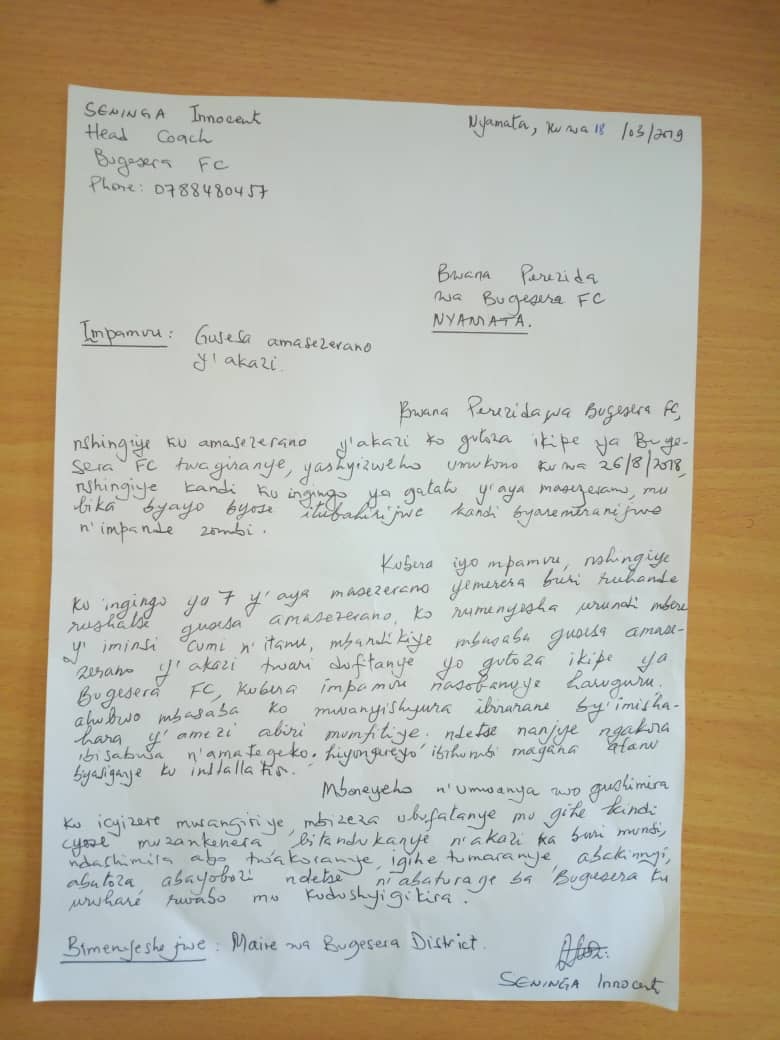 SENINGA Innocent
Nyamata, Ku wa 18 /03/2019
Head Coach
Bugesera FC
Phone: 0788480457
Bwana Perezida
wa Bugesera FC
NYAMATA.
Impamvu: Gusesa amasezerano
y'akazi.
Bwana Perezida wa Bugesera FC,
nshingiye ku amasezerano y'akazi ko gutoza ikipe ya Buge-
sera FC twagiranye, yashyizweho umukono kuwa 26/8/2018,
nshingiye kandi ku ingingo ya gatatu y'aya masezerano, mu
bika byayo byose itubahirijwe kandi byaremeranijwe
n'impande zombi.
Kubera iyo mpamvu, nshingiye
ku ingingo ya 7 y'aya masezerano yemerera buri ruhande
rushatse gusesa amasezerano, ko rumenyesha urundi mbere
y'iminsi cumi n'itanu, mbandikiye mbasaba gusesa amase-
zerano y'akazi twari dufitanye yo gutoza ikipe ya
Bugesera FC, kubera impamvu nasobanuye haruguru.
ahubwo mbasaba ko mwanyishyura ibirarane by'imisha-
hara y'amezi abiri mumfitiye. ndetse nanjye ngakora
ibisabwa n'amategeko. hiyongereyo ibihumbi magana atanu
byasigaye ku installation.
Mboneyeho n'umwanya wo gushimira
ku icyizere mwangiriye, mbizeza ubufatanye mu gihe kindi
cyose muzankenera bitandukanye n'akazi ka buri munsi,
ndashimira abo twakoranye, igihe tumaranye, abakinnyi,
abatoza abayobozi ndetse n'abaturage ba Bugesera ku
uruhare rwabo mu kudushyigikira.
Bimenyeshejwe: Maire wa Bugesera District.
SENINGA Innocent